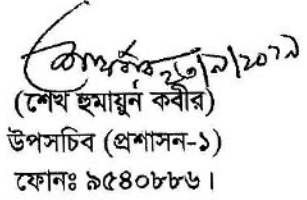 ২৩/৯/২০১৯
(শেখ হুমায়ুন কবীর)
উপসচিব (প্রশাসন-১)
ফোনঃ ৯৫৪০৮৮৬।